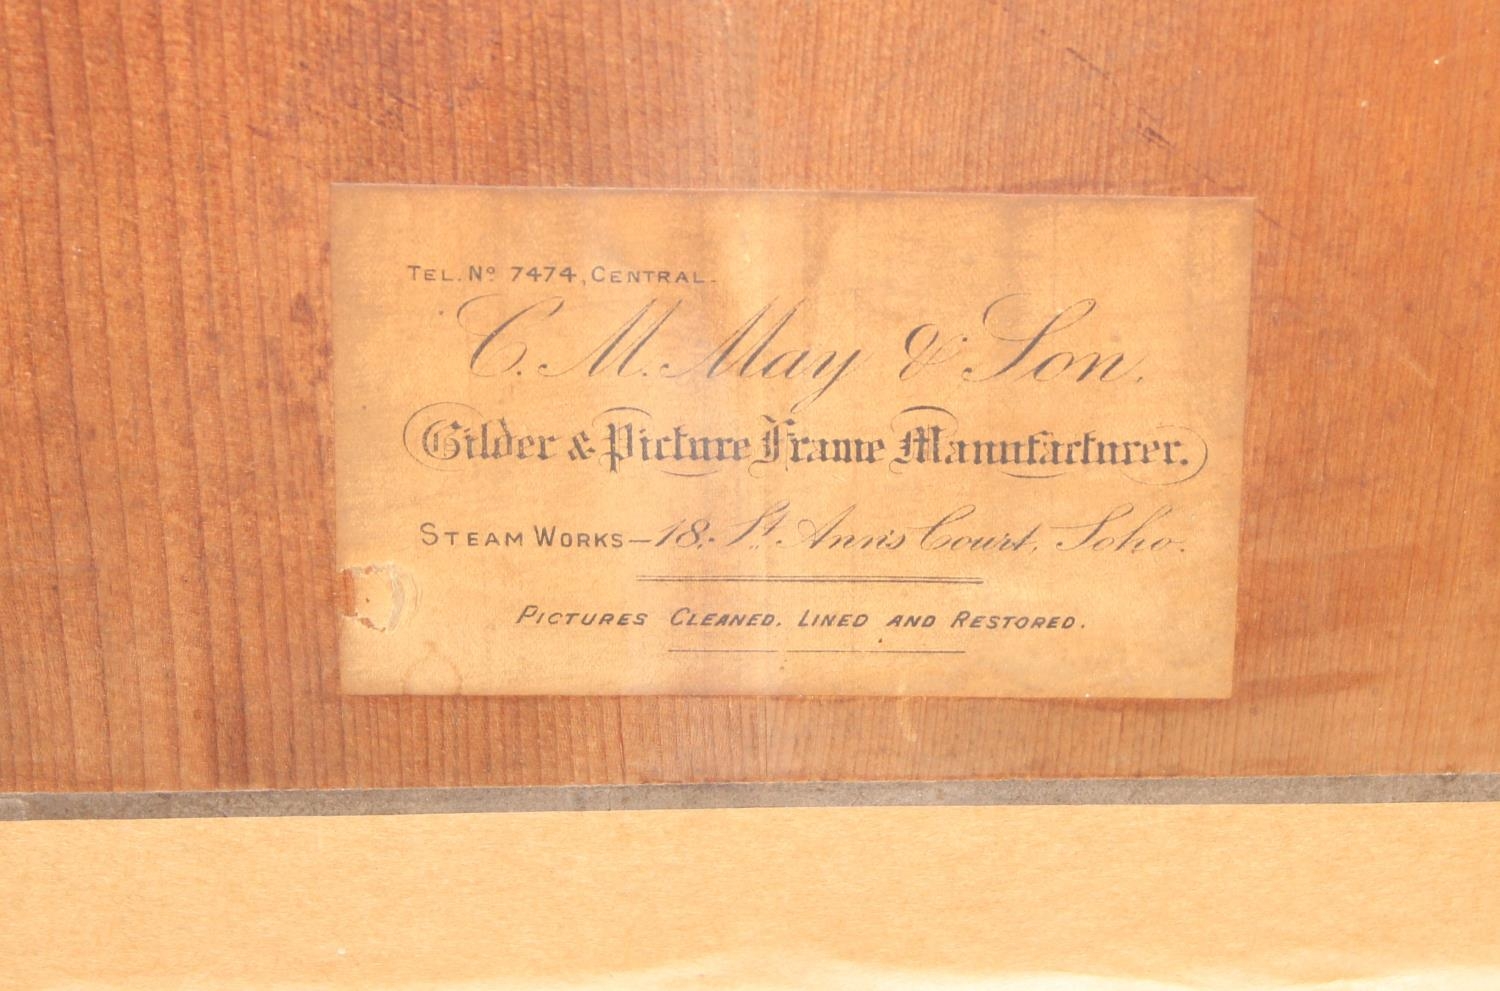 TEL. Nº 7474, CENTRAL.
C. M. May & Son.
Gilder & Picture Frame Manufacturer.
STEAM WORKS – 18, St. Ann's Court, Soho.
PICTURES CLEANED, LINED AND RESTORED.